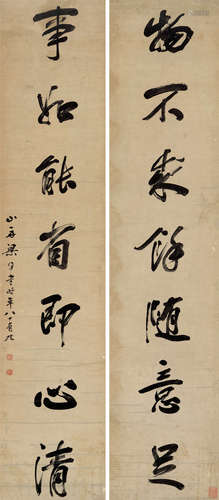 物不求餘隨意足
事如能省即心清
山舟梁同書時年八十有九